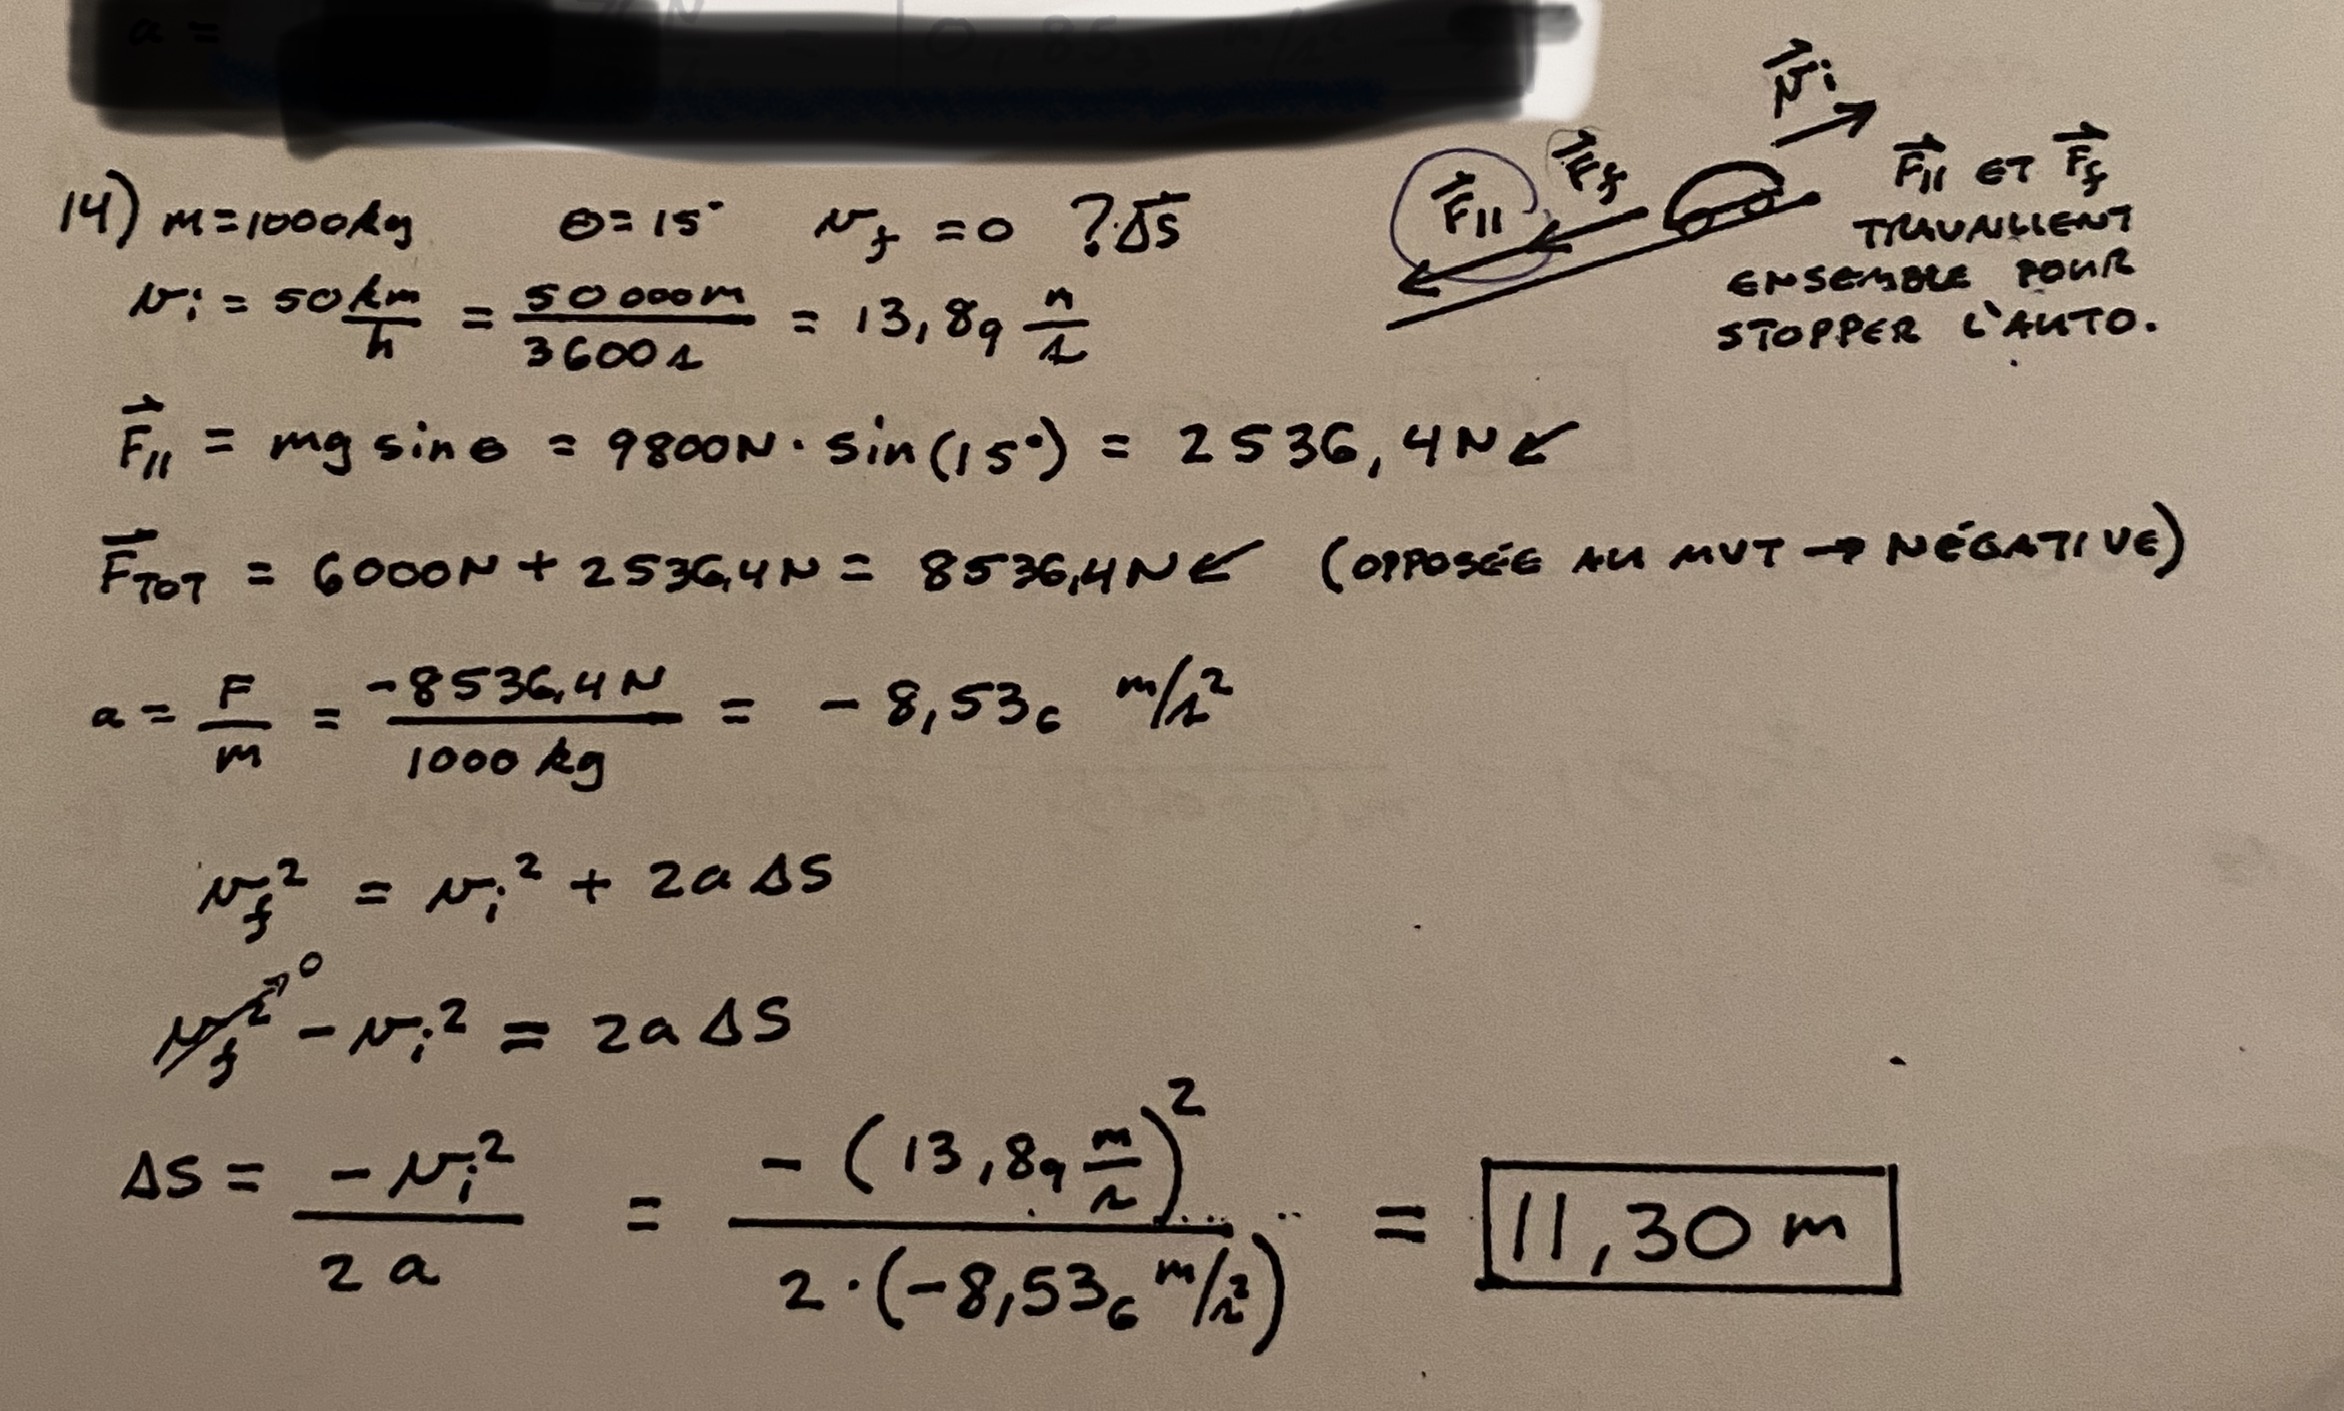 a =
14) m = 1000 kg θ = 15° v_f = 0 ? Δs⃗
v_i = 50 km/h = 50 000 m / 3600 s = 13,89 m/s
v⃗i
F⃗f
F⃗//
F⃗// ET F⃗f
TRAVAILLENT
ENSEMBLE POUR
STOPPER L'AUTO.
F⃗// = mg sin θ = 9800N · sin(15°) = 2536,4N ↙
F⃗TOT = 6000N + 2536,4N = 8536,4N ↙ (OPPOSÉE AU MVT → NÉGATIVE)
a = F/m = -8536,4N / 1000 kg = -8,536 m/s²
v_f² = v_i² + 2aΔS
v_f²→0 - v_i² = 2aΔS
ΔS = -v_i² / 2a = -(13,89 m/s)² / 2·(-8,536 m/s²) = 11,30 m